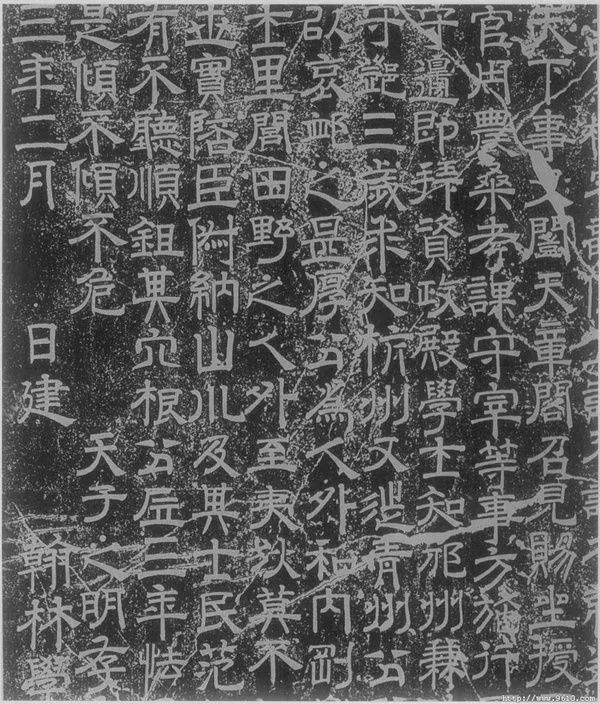 天下事又開天章閣召見賜坐授
官農桑考課守宰等事方施行
守邊即拜資政殿學士知邠州兼
守鄧三歲求知杭州又徙青州公
以哀卹之甚厚公為人外和內剛
士里閭田野之人外至夷狄莫不
世實陪臣俶納山川及其士民范
有不聽順鉏其穴根公居三年怯
是傾不傾不危 天子之明
三年二月 日建 翰林學
http://www.9610.com